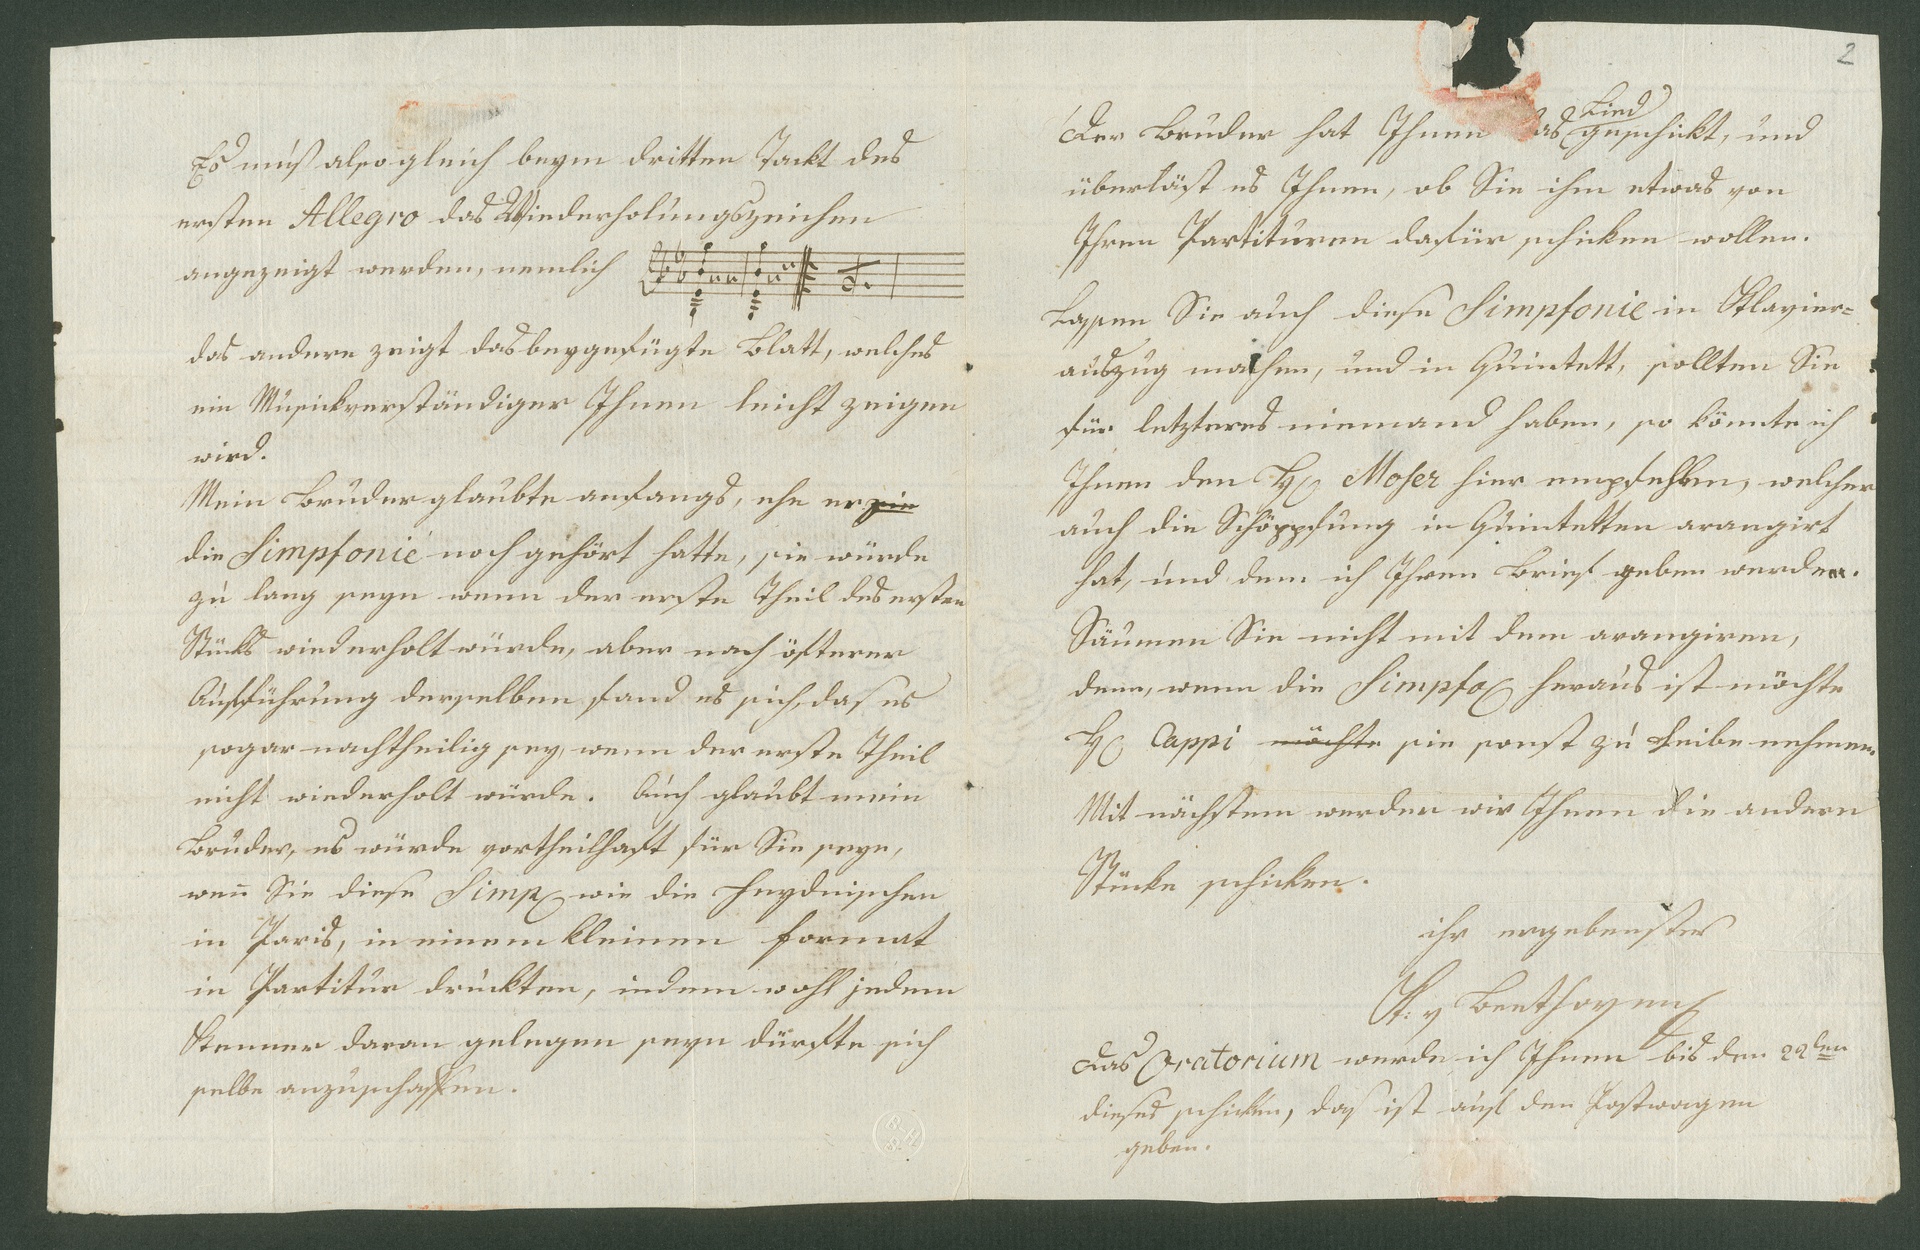 Es muß also gleich beym dritten Tackt des
ersten Allegro das Wiederholungszeichen
angezeigt werden, nemlich
das andere zeigt das beygefügte Blatt, welches
ein Musickverständiger Ihnen leicht zeigen
wird.
Mein Bruder glaubte anfangs, ehe er sie
die Simpfonie noch gehört hatte, sie würde
zu lang seyn wenn der erste Theil des ersten
Stücks wiederholt würde, aber nach öfterer
Aufführung derselben fand es sich, daß es
sogar nachtheilig sey, wenn der erste Theil
nicht wiederholt würde. Auch glaubt mein
Bruder, es würde vortheilhaft für Sie seyn,
wen̄ Sie diese Simp wie die Heydnischen
in Paris, in einem kleinen format
in Partitur druckten, indem wohl jedem
Kenner daran gelegen seyn dürfte sich
selbe anzuschaffen.
2
Der Bruder hat Ihnen das Lied geschickt, und
überläst es Ihnen, ob Sie ihm etwas von
Ihren Partituren dafür schicken wollen.
Lassen Sie auch diese Simpfonie in Klavier=
auszug machen, und in Quintett, sollten Sie
für letzteres niemand haben, so könnte ich
Ihnen den H. Moser hier empfehlen, welcher
auch die Schöppfung in Quintetten arangirt
hat, und dem ich Ihren Brief geben werde.
Säumen Sie nicht mit dem arangiren,
denn, wenn die Simpfo heraus ist möchte
H. Cappi möchte sie sonst zu Leibe nehmen.
Mit nächstem werden wir Ihnen die andern
Stücke schicken.
ihr ergebenster
K: v Beethoven
Das Oratorium werde ich Ihnen bis den 22ten
dieses schicken, das ist auf den Postwagen
geben.